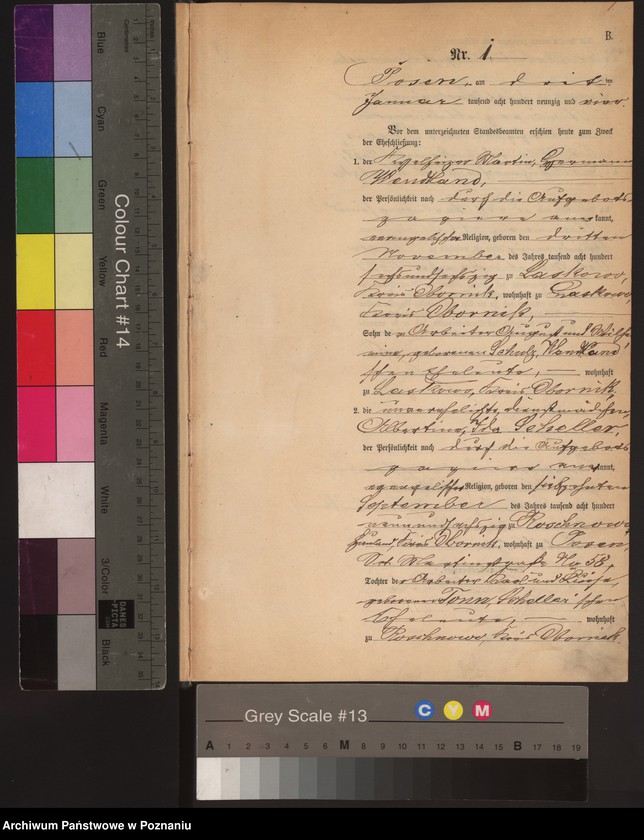 B.
Nr. 1
Posen, am drit ten
Januar tausend acht hundert neunzig und vier
Vor dem unterzeichneten Standesbeamten erschien heute zum Zweck
der Eheschließung:
1. der Martin, Hermann
Wendland,
der Persönlichkeit nach durch die Aufgebots-
papiere aner kannt,
evangelischer Religion, geboren den dritten
November des Jahres tausend acht hundert
sechsundsechszig zu Laskowo,
Kreis Obornik, wohnhaft zu Laskowo,
Kreis Obornik,
Sohn de r Arbeiter August und Wilhel-
mine, geborenen Scholz, Wendland'
schen Eheleute, wohnhaft
zu Laskowo, Kreis Obornik,
2. die unverehelichte, Dienstmädchen,
Albertine, Ida Scheller
der Persönlichkeit nach durch die Aufgebots-
papiere aner kannt,
evangelischer Religion, geboren den siebzehnten
September des Jahres tausend acht hundert
neunund zu Roschnowo
Hauland, Kreis Obornik, wohnhaft zu Posen,
Sct. Martinstraße No 58,
Tochter der Arbeiter Carl und
geborenen Tonn, Scheller'schen
Eheleute, wohnhaft
zu Roschnowo, Kreis Obornik.
Colour Chart #14
Blue
Cyan
Green
Yellow
Red
Magenta
White
3/Color
Black
Centimetres
Inches
DANES
PICTA
.COM
Grey Scale #13
C Y M
A 1 2 3 4 5 6 M 8 9 10 11 12 13 14 15 B 17 18 19
Archiwum Państwowe w Poznaniu